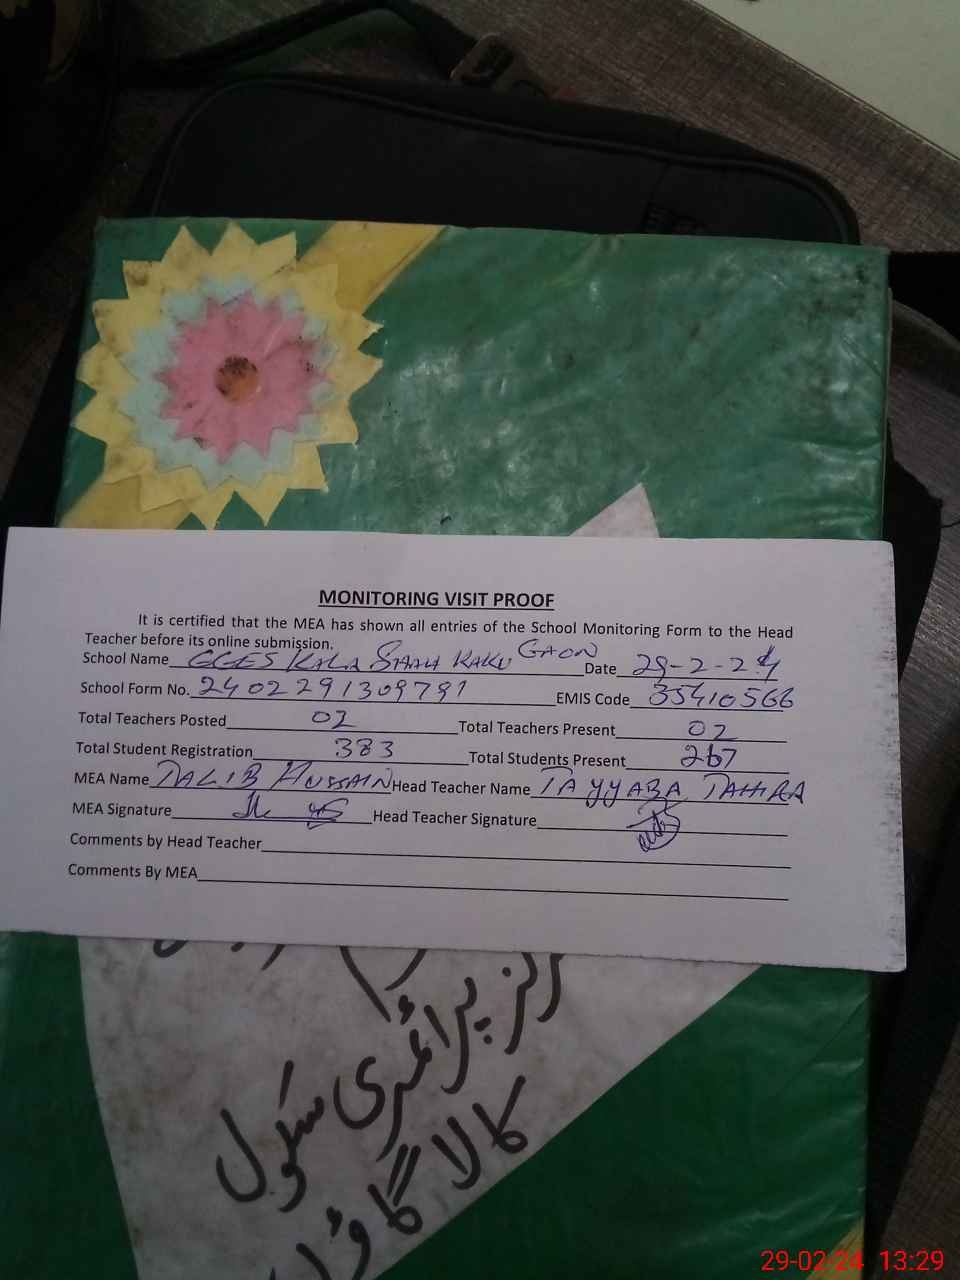 MONITORING VISIT PROOF
It is certified that the MEA has shown all entries of the School Monitoring Form to the Head
Teacher before its online submission.
School Name GGES KALA SHAH KAKU GAON Date 29-2-24
School Form No. 2402291309791 EMIS Code 35410566
Total Teachers Posted 02 Total Teachers Present 02
Total Student Registration 383 Total Students Present 267
MEA Name TALIB HUSSAIN Head Teacher Name TAYYABA TAHIRA
MEA Signature Head Teacher Signature
Comments by Head Teacher
Comments By MEA
گرلز پرائمری سکول
کالا گاؤں
29-02-24 13:29